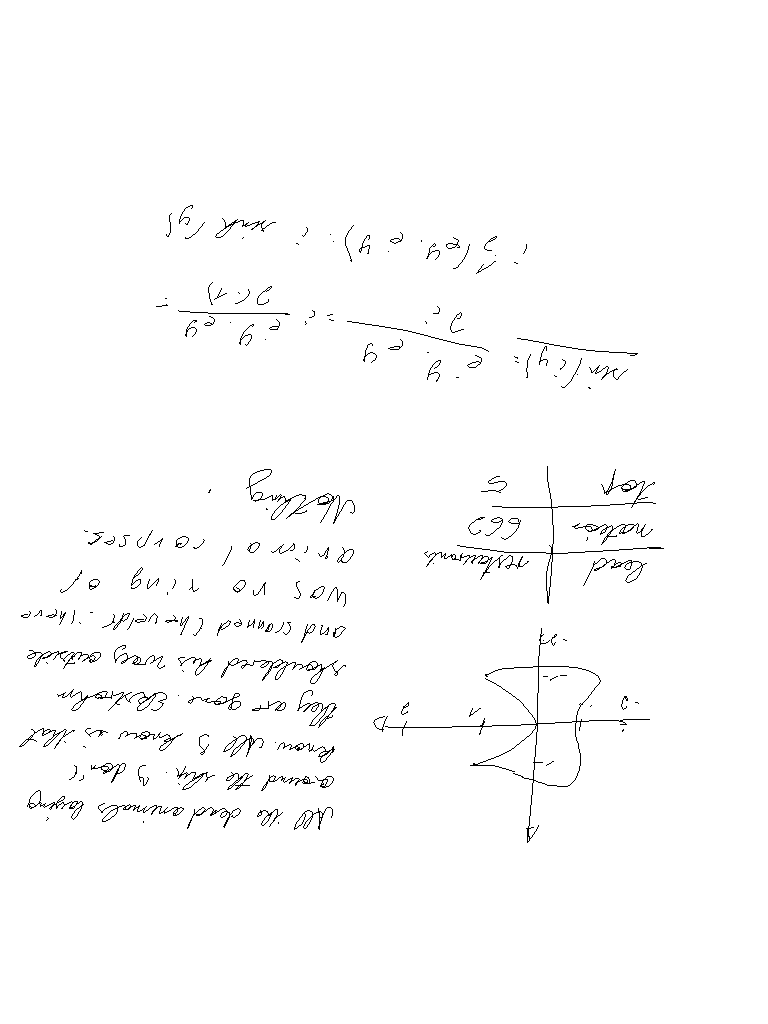 All the dead animals laying
around the ship. I don't
know. All I know is that
they are gone. Ekstrohm
shouldered his way outside
and scanned the veldt. There
was no ring of
animal corpses.
Nothing.
-2 -1 1 2
-1
-2
lead restaurants
nation 662
top 5
sin(iy) = e^-y - e^y / 2i = i e^-y - e^y / 2(-1) =
i 1/2 (e^y - e^-y) = i sinh(y)